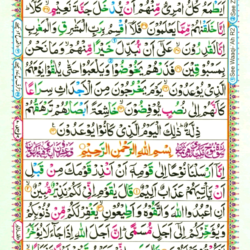 اَيَطْمَعُ كُلُّ امْرِئٍ مِّنْهُمْ اَنْ يُّدْخَلَ جَنَّةَ نَعِيْمٍ ۙ كَلَّا ؕ
اِنَّا خَلَقْنٰهُمْ مِّمَّا يَعْلَمُوْنَ فَلَاۤ اُقْسِمُ بِرَبِّ الْمَشٰرِقِ وَالْمَغٰرِبِ
اِنَّا لَقٰدِرُوْنَ ۙ عَلٰۤى اَنْ نُّبَدِّلَ خَيْرًا مِّنْهُمْ ۙ وَمَا نَحْنُ
بِمَسْبُوْقِيْنَ فَذَرْهُمْ يَخُوْضُوْا وَيَلْعَبُوْا حَتّٰى يُلٰقُوْا يَوْمَهُمُ
الَّذِيْ يُوْعَدُوْنَ ۙ يَوْمَ يَخْرُجُوْنَ مِنَ الْاَجْدَاثِ سِرَاعًا
كَاَنَّهُمْ اِلٰى نُصُبٍ يُّوْفِضُوْنَ ۙ خَاشِعَةً اَبْصَارُهُمْ تَرْهَقُهُمْ
ذِلَّةٌ ؕ ذٰلِكَ الْيَوْمُ الَّذِيْ كَانُوْا يُوْعَدُوْنَ
بِسْمِ اللهِ الرَّحْمٰنِ الرَّحِيْمِ
اِنَّاۤ اَرْسَلْنَا نُوْحًا اِلٰى قَوْمِهٖۤ اَنْ اَنْذِرْ قَوْمَكَ مِنْ قَبْلِ
اَنْ يَّاْتِيَهُمْ عَذَابٌ اَلِيْمٌ قَالَ يٰقَوْمِ اِنِّيْ لَكُمْ نَذِيْرٌ مُّبِيْنٌ
اَنِ اعْبُدُوا اللهَ وَاتَّقُوْهُ وَاَطِيْعُوْنِ ۙ يَغْفِرْ لَكُمْ مِّنْ ذُنُوْبِكُمْ
وَيُؤَخِّرْكُمْ اِلٰۤى اَجَلٍ مُّسَمًّى ؕ اِنَّ اَجَلَ اللهِ اِذَا جَآءَ لَا
See Waaqi-Ah R2